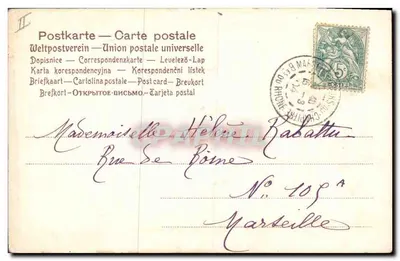 II
Postkarte — Carte postale
Weltpostverein — Union postale universelle
Dopisnice — Correspondenzkarte — Levelező-Lap
Karta korespondencyjna — Korespondenční lístek
Briefkaart — Cartolina postale — Post card — Brevkort
Brefkort — Открытое письмо — Tarjeta postal
5
Mademoiselle Hélène Rabattu
Rue de Rome
No 105 A
Marseille